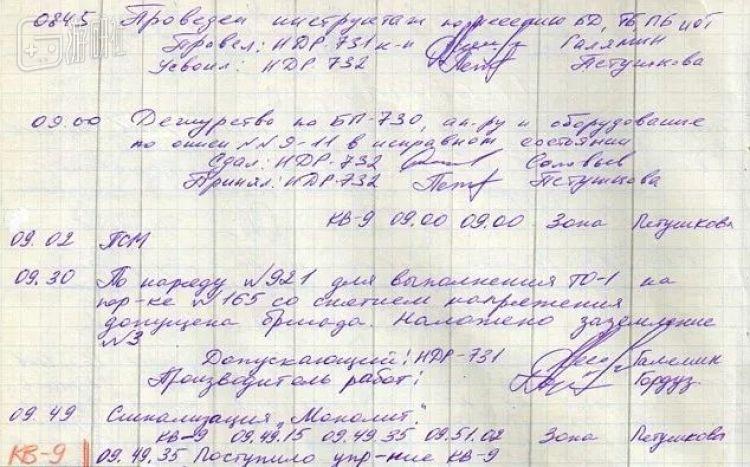 游民星空
0845 Проведен инструктаж по несению БД, ТБ, ПБ и ОТ
Провел: НДР 731 к-н Галямин
Усвоил: НДР 732 Петушкова
09.00 Дежурство по БП-730, ап-ру и оборудование
по описи №№ 9-11 в исправном состоянии
Сдал: НДР-732 Соловьев
Принял: НДР 732 Петушкова
КВ-9 09.00 09.00 Зона Петушкова
09.02 ПСМ
09.30 По наряду №921 для выполнения ТО-1 на
№165 со снятием напряжения
допущена бригада. Наложено заземление
№3
Допускающий: НДР-731 Галямин
Производитель работ:
09.49 Сигнализация „Монолит."
КВ-9 09.49.15 09.49.35 09.51.02 Зона Петушкова
КВ-9 09.49.35 Поступило упр-ние КВ-9